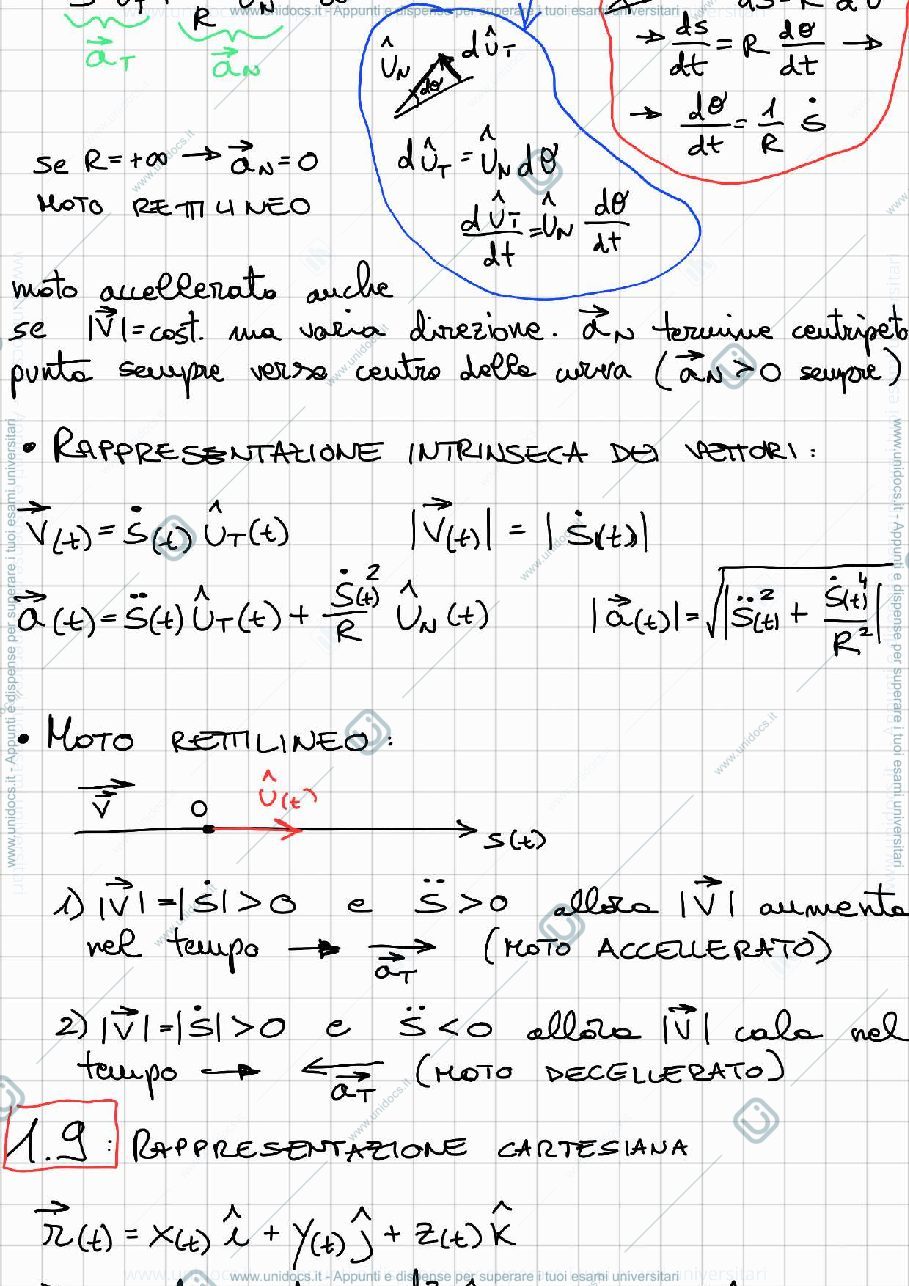 www.unidocs.it - Appunti e dispense per superare i tuoi esami universitari
R
a⃗_T
a⃗_N
Û_N dÛ_T
dθ
→ ds/dt = R dθ/dt →
→ dθ/dt = 1/R ṡ
se R = +∞ → a⃗_N = 0
MOTO RETTILINEO
dÛ_T = Û_N dθ
dÛ_T/dt = Û_N dθ/dt
moto accellerato anche
se |V⃗| = cost. ma varia direzione. a⃗_N termine centripeto
punta sempre verso centro della curva (a⃗_N > 0 sempre)
• RAPPRESENTAZIONE INTRINSECA DEI VETTORI:
V⃗(t) = Ṡ(t) Û_T(t) |V⃗(t)| = |Ṡ(t)|
a⃗(t) = S̈(t) Û_T(t) + Ṡ(t)²/R Û_N(t) |a⃗(t)| = √|S̈(t)² + Ṡ(t)⁴/R²|
• MOTO RETTILINEO:
V⃗ O Û(t)
S(t)
1) |V⃗| = |Ṡ| > 0 e S̈ > 0 allora |V⃗| aumenta
nel tempo → a⃗_T (MOTO ACCELLERATO)
2) |V⃗| = |Ṡ| > 0 e S̈ < 0 allora |V⃗| cala nel
tempo → a⃗_T (MOTO DECELLERATO)
1.9 : RAPPRESENTAZIONE CARTESIANA
r⃗(t) = x(t) î + y(t) ĵ + z(t) k̂
www.unidocs.it - Appunti e dispense per superare i tuoi esami universitari